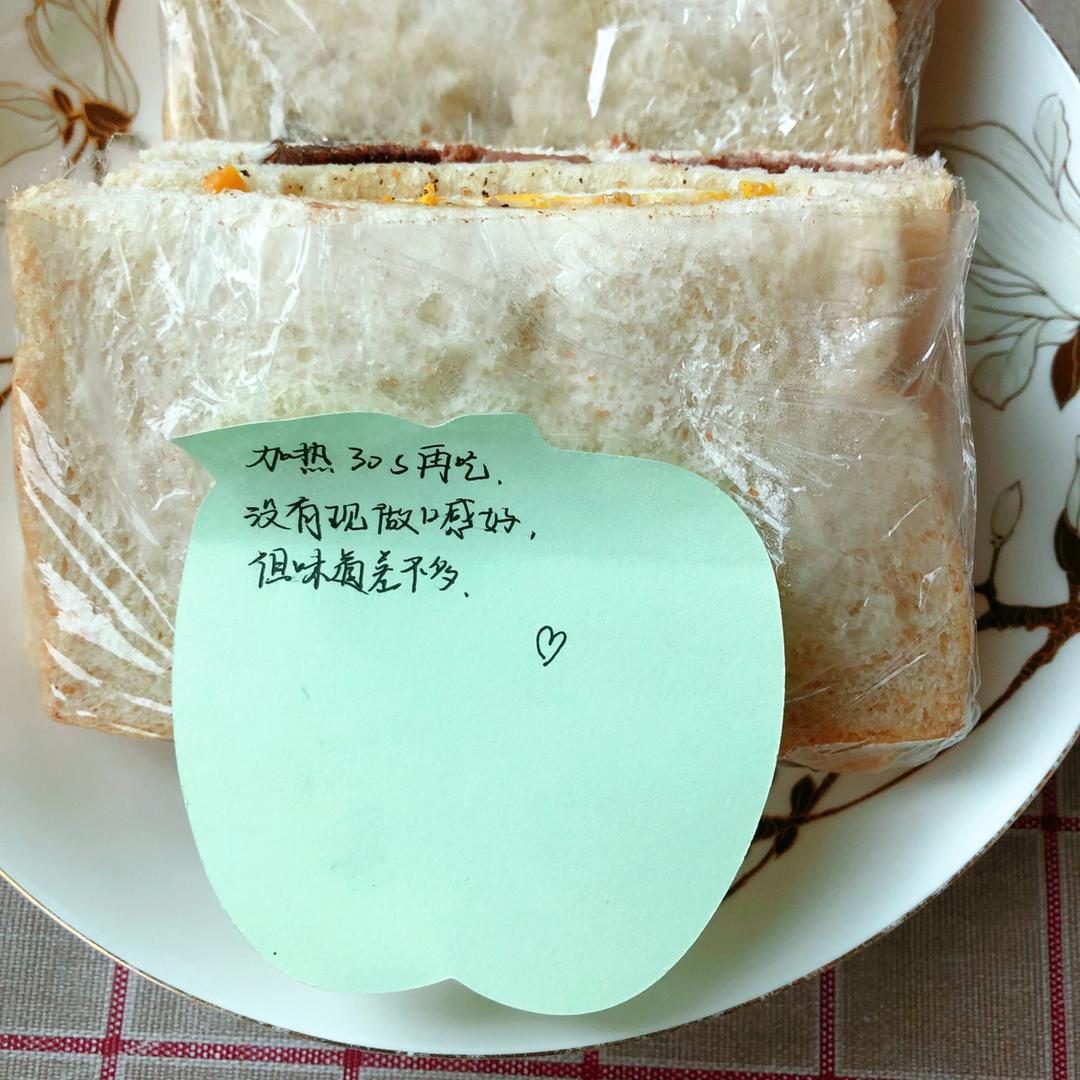 加热30s再吃.
没有现做口感好,
但味道差不多.
♡